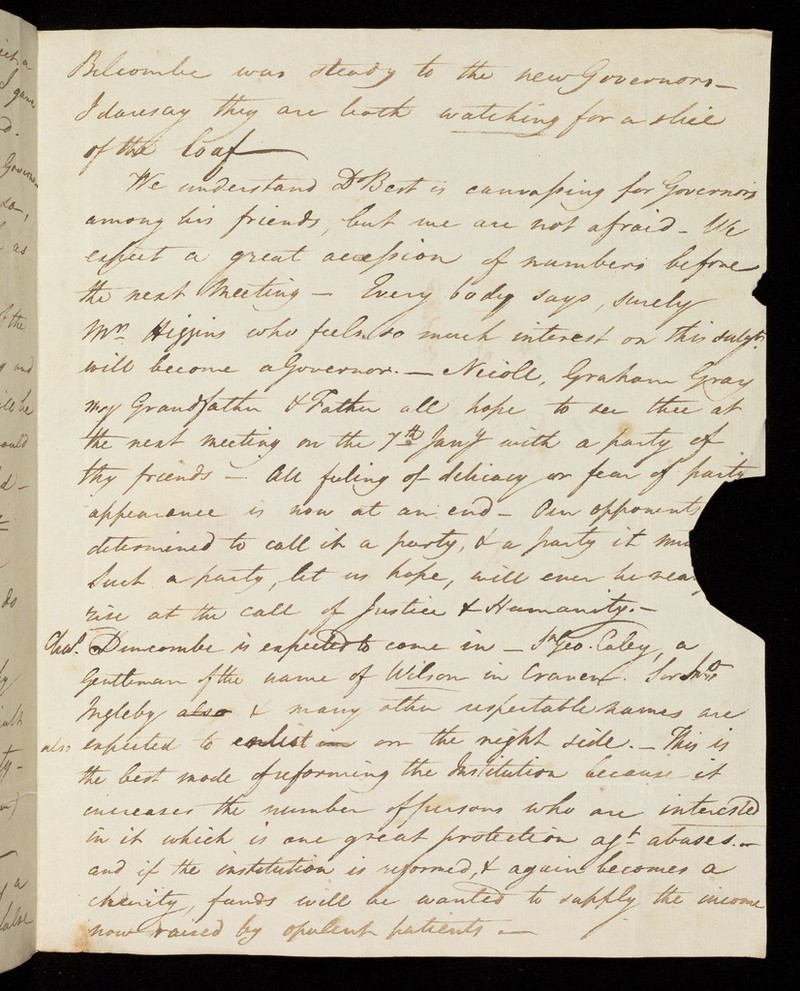 Belcombe was steady to the new Governors —
I daresay they are both watching for a slice
of the loaf —
We understand Dr Best is canvassing for Governors
among his friends, but we are not afraid - We
expect a great accession of numbers before
the next Meeting — Every body says, surely
Mr. Higgins who feels so much interest on this subjt.
will become a Governor. — Nicoll, Graham Gray
my Grandfather & Father all hope to see thee at
the next meeting on the 7th Jany with a party of
thy friends —. All feeling of delicacy or fear of party
appearance is now at an end - Our opponents
determined to call it a party, & a party it
Such a party, let us hope, will ever be
rise at the call of Justice & Humanity. —
Chas. Duncombe is expected to come in — Sr Geo. Caley, a
Gentleman of the name of Wilson in Craven. Sir
Ingleby also & many other respectable names are
also expected to enlist in on the right side. — This is
the best mode of reforming the Institution because it
increases the number of persons who are interested
in it which is one great protection agt. abuses. —
and if the institution is reformed, & again becomes a
charity, funds will be wanted to supply the income
now raised by opulent patients —